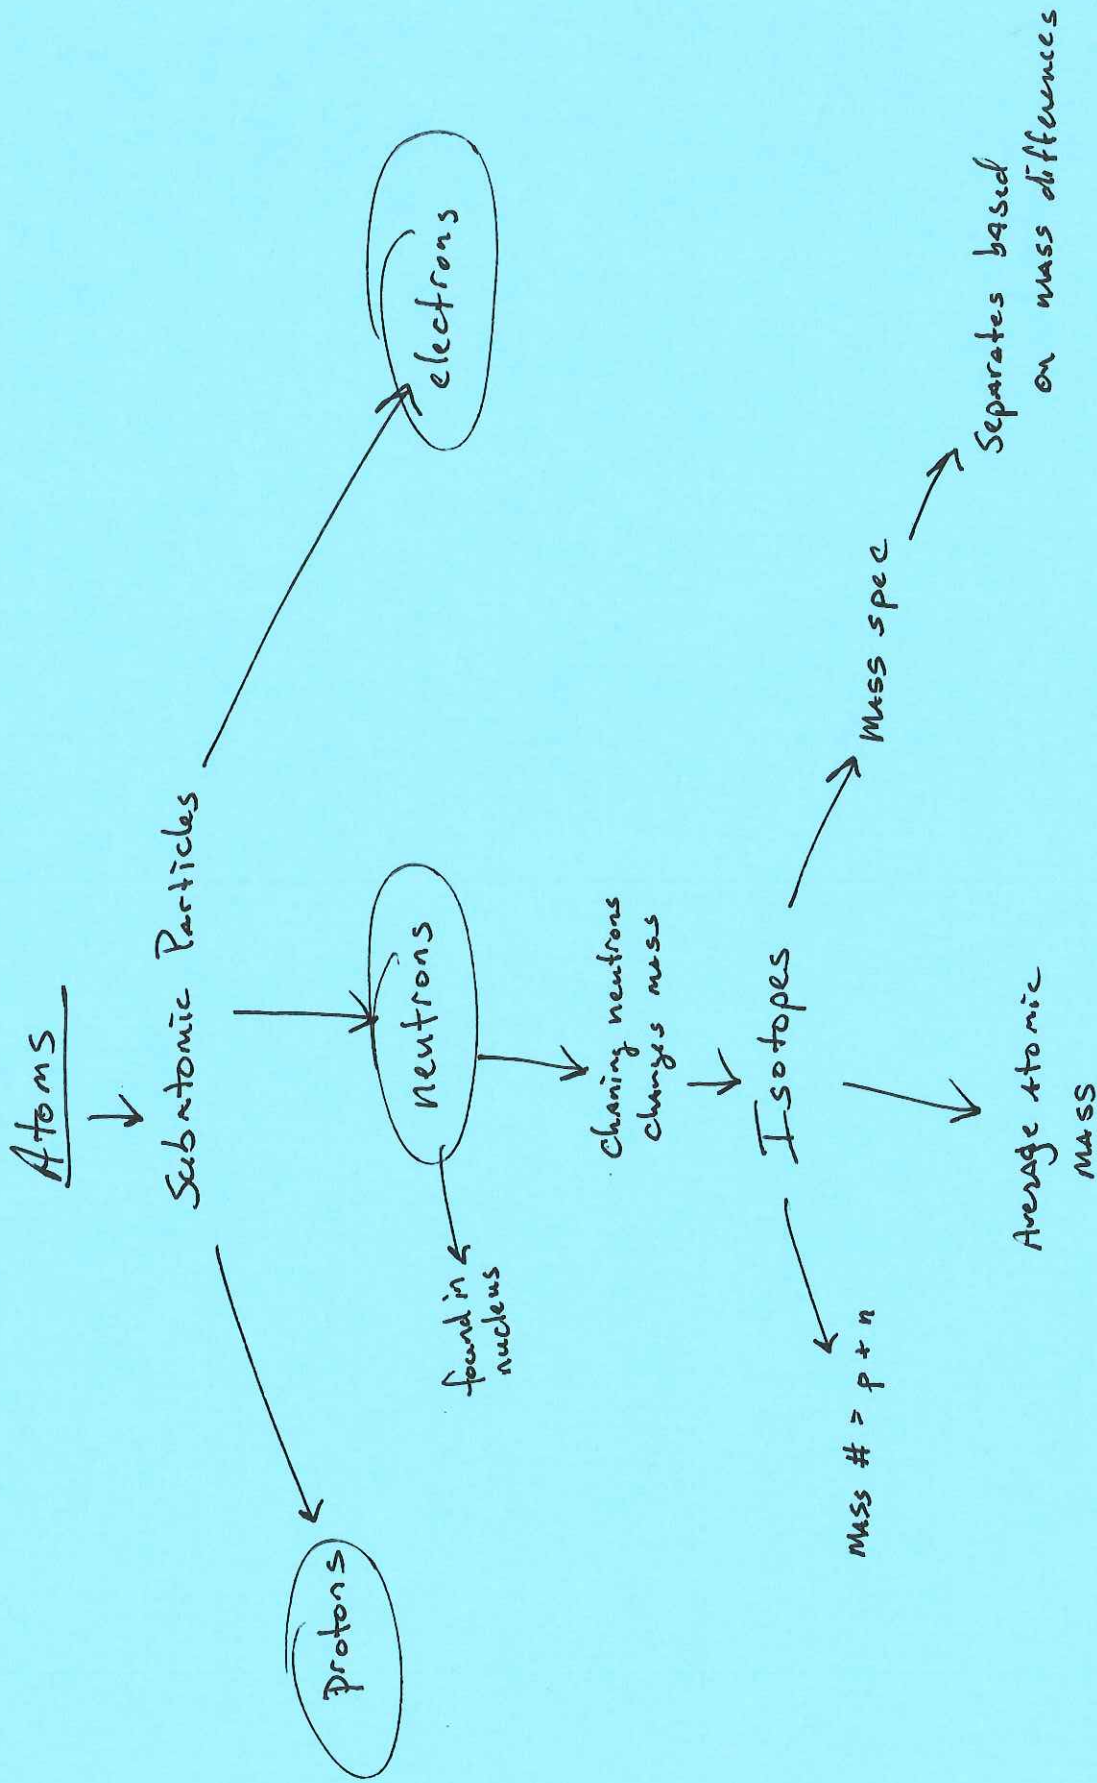 Atoms
Subatomic Particles
protons
neutrons
electrons
found in
nucleus
Chaning neutrons
changes mass
Isotopes
Mass # = p + n
Average Atomic
Mass
Mass spec
Separates based
on mass differences